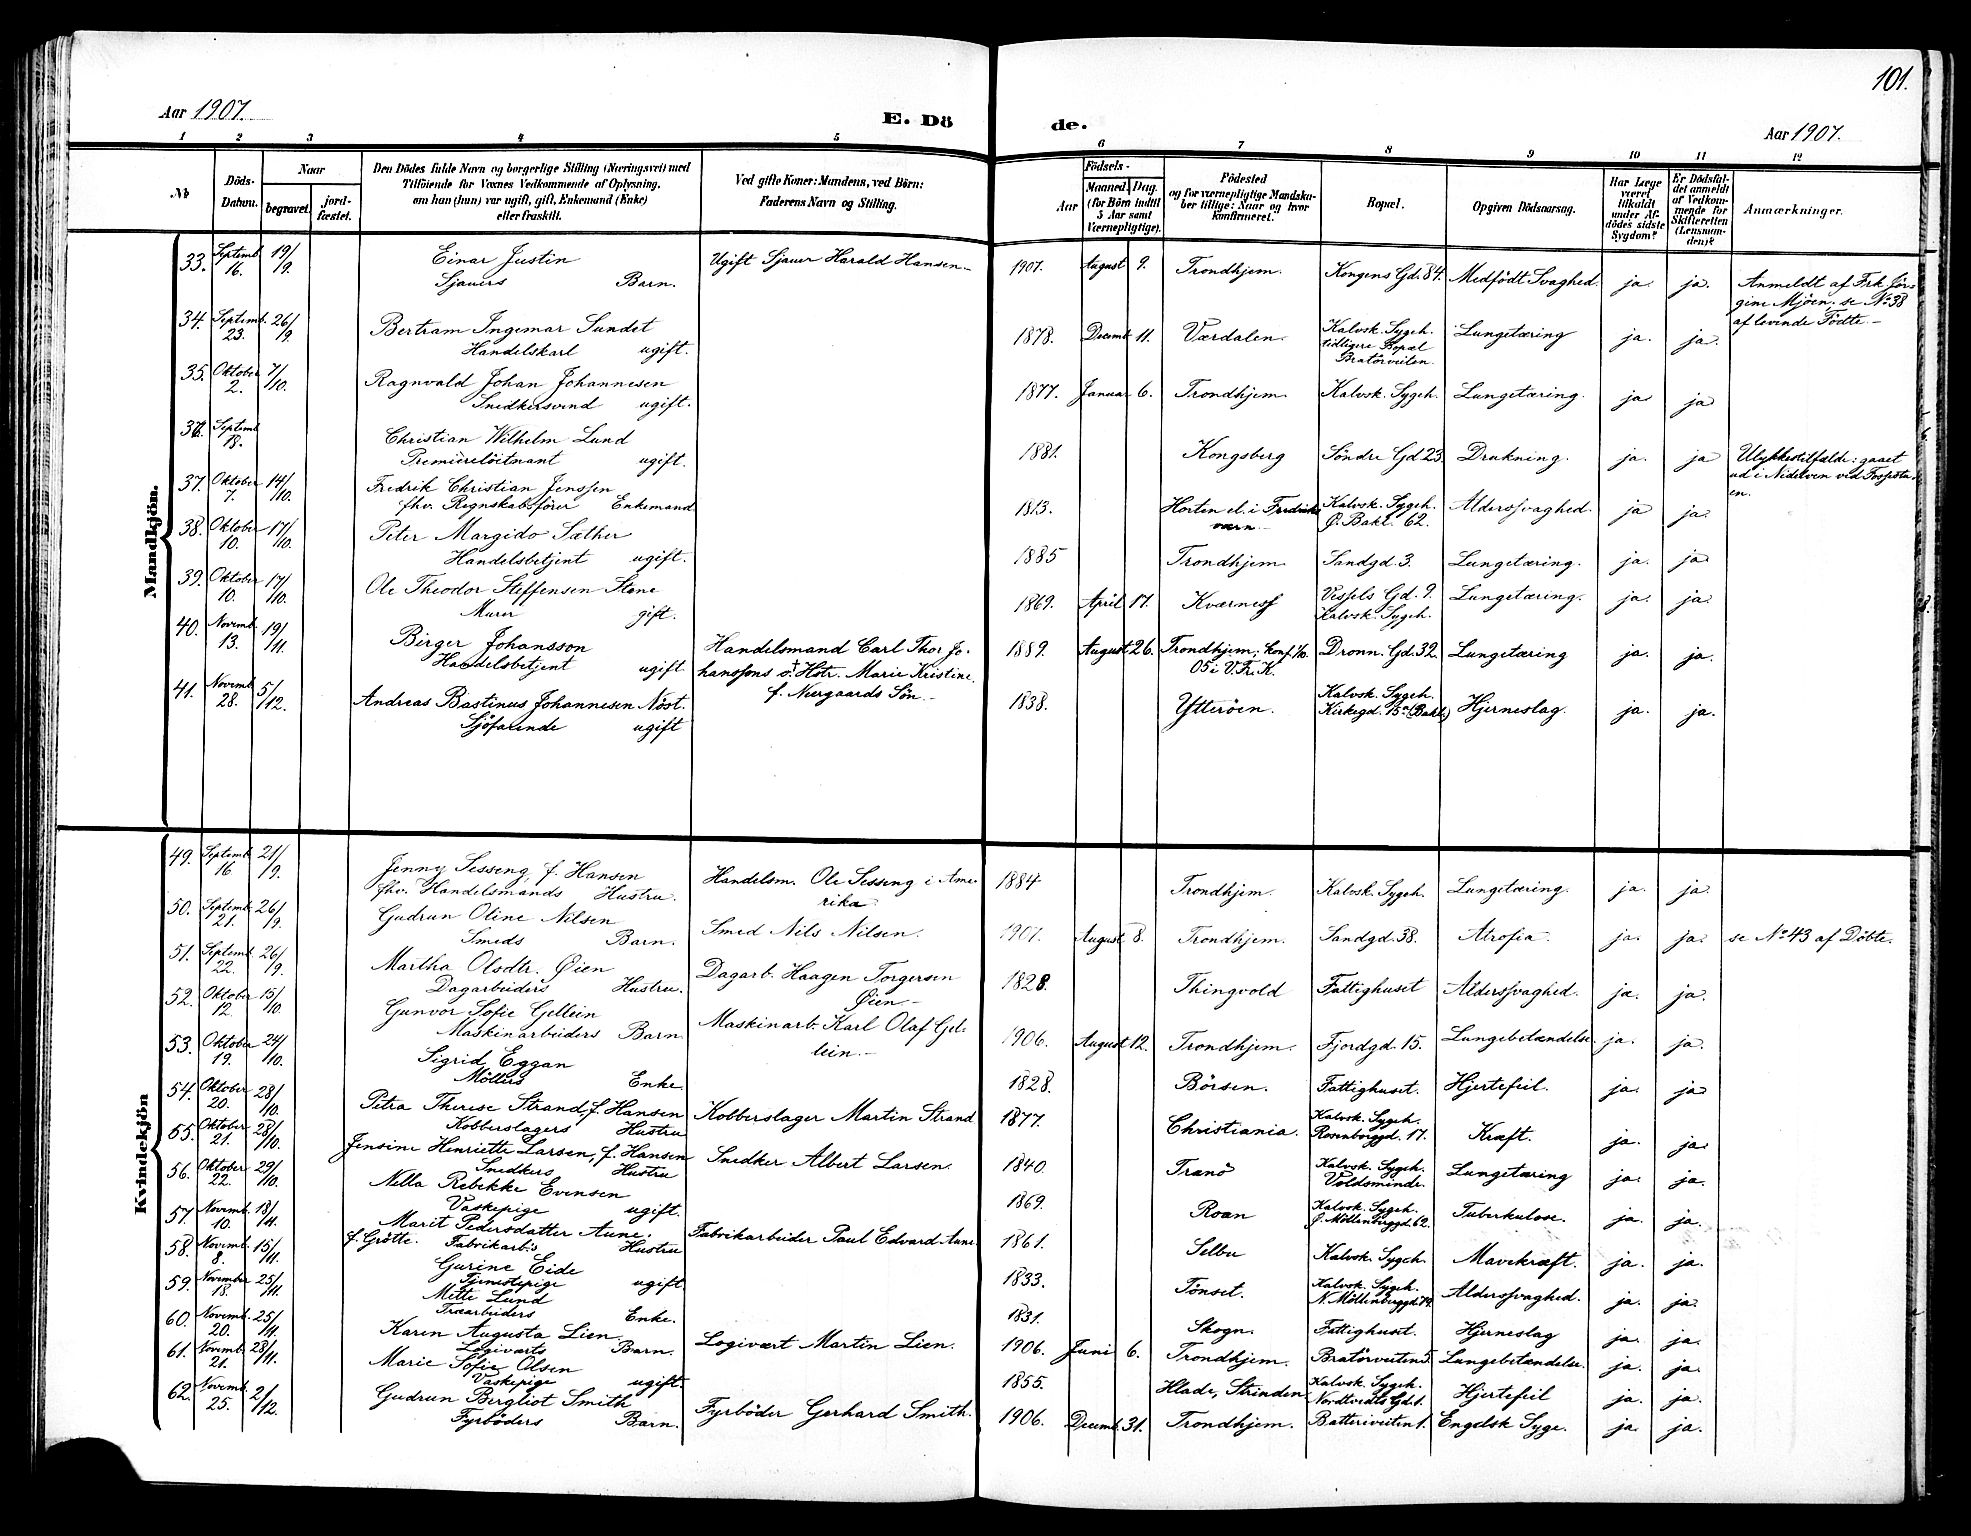 101.
Aar 1907.
E. Döde.
Aar 1907.
1 2 3 4 5 6 7 8 9 10 11 12
No
Döds-Datum.
Naar
begravet.
jordfæstet.
Den Dödes fulde Navn og borgerlige Stilling (Næringsvei) med
Tilföiende for Voxnes Vedkommende af Oplysning,
om han (hun) var ugift, gift, Enkemand (Enke)
eller fraskilt.
Ved gifte Koner: Mandens, ved Börn:
Faderens Navn og Stilling.
Födsels-
Aar
Maaned. Dag.
(for Börn indtil
5 Aar samt
Værnepligtige).
Födested
og for værnepligtige Mandskaber tillige: Naar og hvor
konfirmeret.
Bopæl.
Opgiven Dödsaarsag.
Har Læge
været
tilkaldt
under Afdödes sidste
Sygdom?
Er Dödsfaldet anmeldt
af Vedkommende for
Skifteretten
(Lensmanden)?
Anmærkninger.
Mandkjön.
33. Septemb. 16. 19/9. Einar Justin Sjauers Barn. Ugift Sjauer Harald Hansen 1907. August 9. Trondhjem. Kongens Gd. 84. Medfödt Svaghed. ja. ja. Anmeldt af Frk Jörgine Mjöen, se No 38 af levende Födte.
34. Septemb. 23. 26/9. Bertram Ingemar Sundet Handelskarl ugift. 1878. Decemb. 11. Værdalen. Kalvsk. Sygeh. tidligere Bopæl Bratörveiten. Lungetæring ja. ja.
35. Oktober 2. 7/10. Ragnvald Johan Johannesen Snedkersvend ugift. 1877. Januar 6. Trondhjem Kalvsk. Sygeh. Lungetæring. ja ja
36. Septemb 18. Christian Wilhelm Lund Premierelöitnant ugift. 1881. Kongsberg Söndre Gd 23. Drukning. ja. ja Ulykkestilfælde: gaaet ud i Nidelven ved
37. Oktober 7. 14/10. Fredrik Christian Jenssen fhv. Regnskabsförer Enkemand 1813. Horten el. i Fredriksværn Kalvsk. Sygeh. Ö. Bakl. 62. Alderssvaghed. ja ja.
38. Oktober 10. 17/10. Peter Margido Sæther Handelsbetjent ugift. 1885 Trondhjem Sandgd 3. Lungetæring. ja. ja
39. Oktober 10. 17/10. Ole Theodor Steffensen Stene Murer gift. 1869. April 17. Kværness Vessels Gd. 9. Kalvsk. Sygeh. Lungetæring. ja. ja.
40. Novemb. 13. 19/11. Birger Johansson Handelsbetjent ugift Handelsmand Carl Thor Johanssons o. Hstr. Marie Kristine f. Nergaards Sön. 1889. August 26. Trondhjem; Konf. 1/10. 05 i V. Fr. K. Dronn. Gd. 32. Lungetæring ja. ja.
41. Novemb. 28. 5/12. Andreas Bastinus Johannesen Nöst. Sjöfarende ugift 1838. Ytteröen. Kalvsk. Sygeh. Kirkegd. 15a (Bakl.) Hjerneslag. ja. ja.
Kvindekjön
49. Septemb. 16 21/9. Jenny Sesseng, f. Hansen fhv. Handelsmands Hustru. Handelsm. Ole Sesseng i Amerika 1884 Trondhjem. Kalvsk. Sygeh. Lungetæring. ja. ja
50. Septemb. 21. 26/9. Gudrun Oline Nilsen Smeds Barn. Smed Nils Nilsen. 1907. August 8. Trondhjem. Sandgd. 38. Atrofia. ja. ja. se No 43 af Döbte.
51. Septemb. 22. 26/9. Martha Olsdtr. Öien Dagarbeiders Hustru. Dagarb. Haagen Torgersen Öien 1828. Thingvold Fattighuset Alderssvaghed. ja. ja.
52. Oktober 12. 15/10. Gunvor Sofie Gellein Maskinarbeiders Barn. Maskinarb. Karl Olaf Gellein. 1906. August 12. Trondhjem. Fjordgd. 15. Lungebetændelse. ja. ja.
53. Oktober 19. 24/10. Sigrid Eggan Möllers Enke 1828. Börsen. Fattighuset. Hjertefeil. ja. ja
54. Oktober 20. 28/10. Petra Therese Strand, f. Hansen Kobberslagers Hustru Kobberslager Martin Strand 1877. Christiania. Kalvsk. Sygeh. Rosenborggd. 17. Kræft. ja. ja
55. Oktober 21. 28/10. Jensine Henriette Larsen, f. Hansen Snedkers Hustru Snedker Albert Larsen. 1840. Tranö Kalvsk. Sygeh. Voldsminde. Lungetæring ja. ja.
56. Oktober 22. 29/10. Nella Rebekke Evensen Vaskepige ugift. 1869. Roan Kalvsk. Sygeh. Ö. Möllenberggd. 62. Tuberkulose. ja. ja.
57. Novemb. 10. 18/11. Marit Pedersdatter Aune, f. Grötte. Fabrikarb.s Hustru Fabrikarbeider Paul Edvard Aune. 1861. Selbu Kalvsk. Sygeh. Mavekræft. ja. ja.
58. Novemb. 8. 15/11. Gurine Eide Tjenestepige ugift 1833. Tönset. Kalvsk. Sygeh. N. Möllenberggd. Alderssvaghed. ja. ja.
59. November 18. 25/11. Mette Lund Træarbeiders Enke. 1831. Skogn. Fattighuset. Hjerneslag ja. ja.
60. Novemb. 20. 25/11. Karen Augusta Lien Logiværts Barn. Logivært Martin Lien. 1906. Juni 6. Trondhjem. Bratörveiten 5. Lungebetændelse. ja. ja.
61. Novemb. 21. 28/11. Marie Sofie Olsen Vaskepige ugift. 1855. Hlade, Strinden Kalvsk. Sygeh. Nordtvedts Gd. 1. Hjertefeil ja. ja.
62. Novemb. 25. 2/12. Gudrun Bergliot Smith Fyrböders Barn. Fyrböder Gerhard Smith. 1906. Decemb. 31. Trondhjem. Batteriveiten 1. Engelsk Syge. ja. ja.